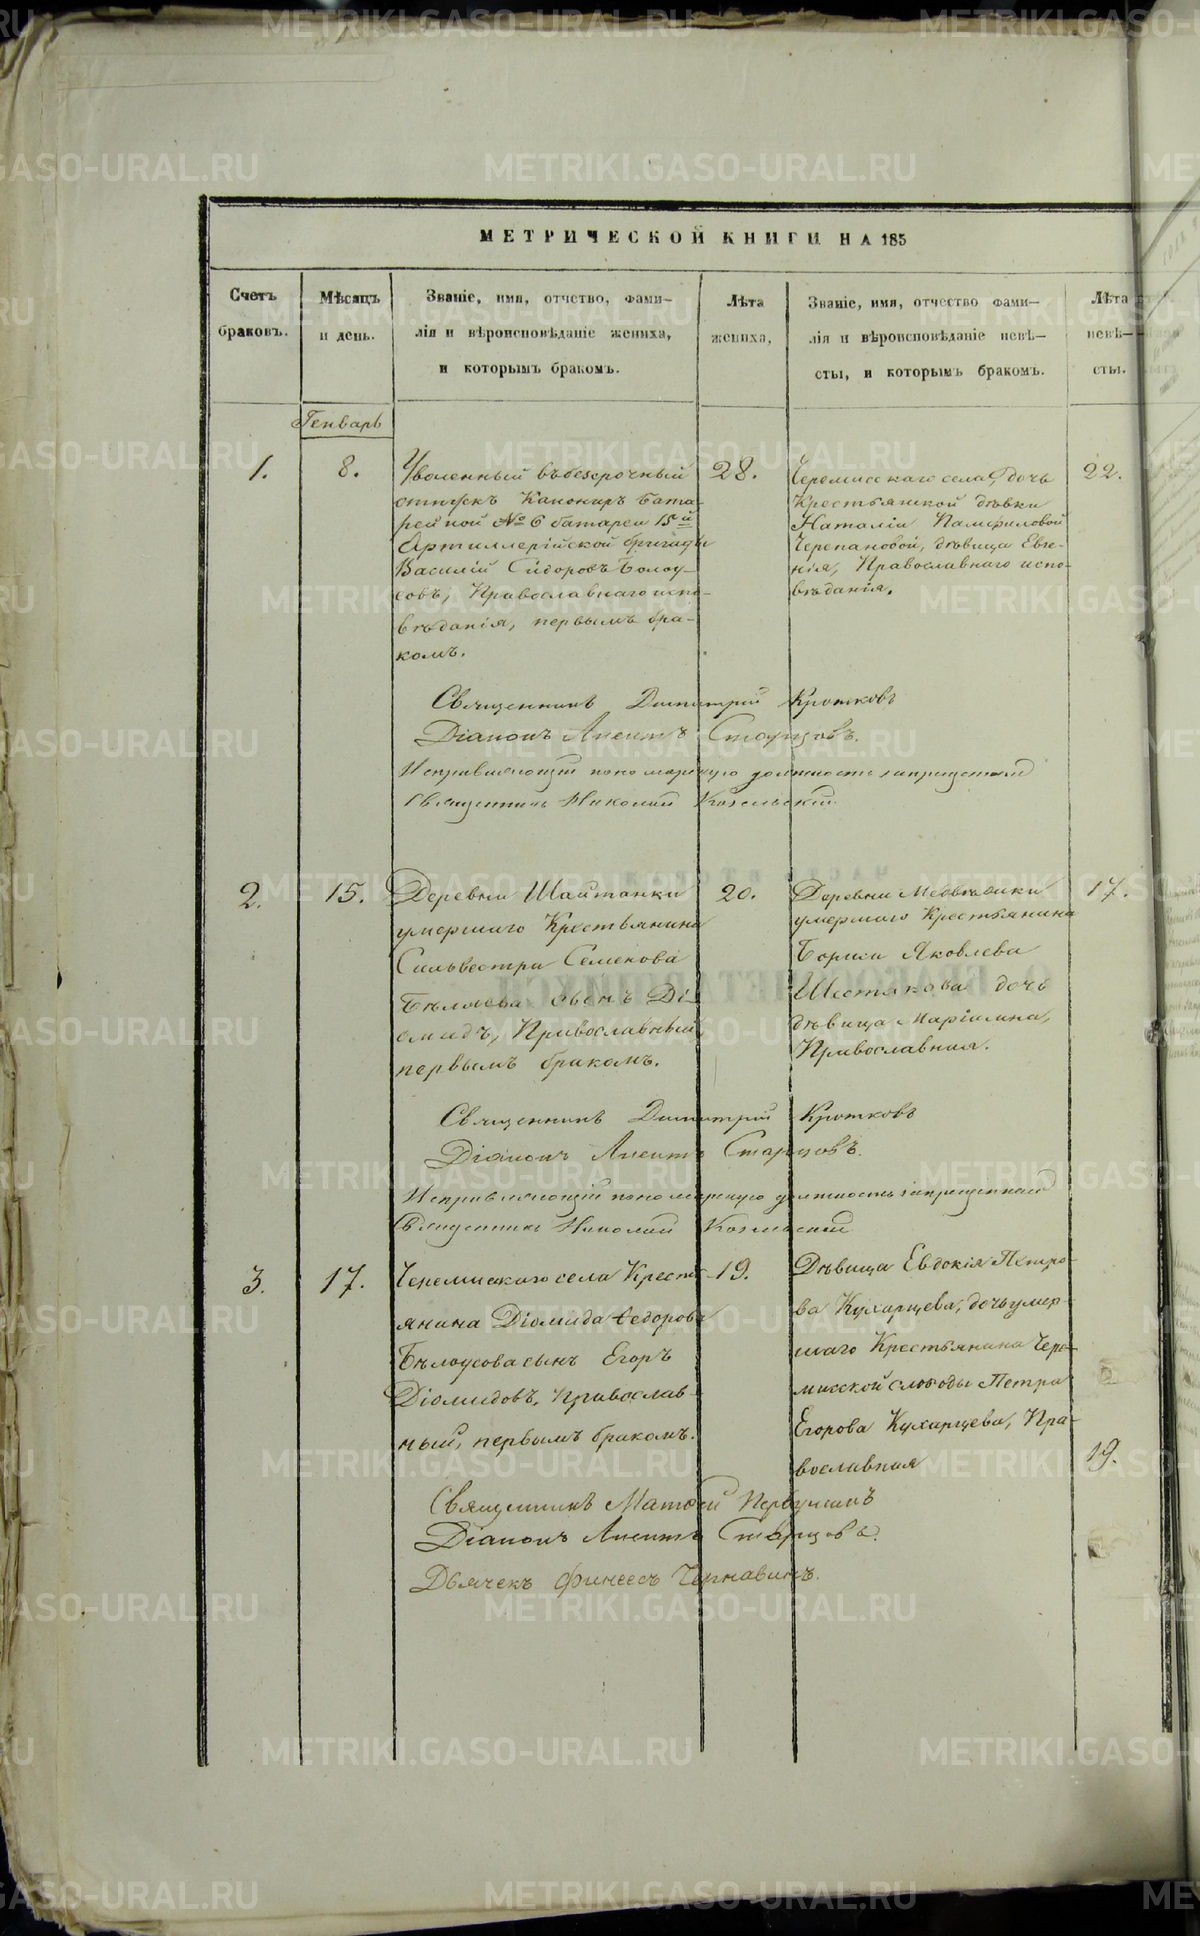 МЕТРИЧЕСКОЙ КНИГИ НА 185
Счетъ
браковъ.
Мѣсяцъ
и день.
Званіе, имя, отчство, фами—
лія и вѣроисповѣданіе жениха,
и которымъ бракомъ.
Лѣта
жениха,
Званіе, имя, отчество фами—
лія и вѣроисповѣданіе невѣ—
сты, и которымъ бракомъ.
Лѣта
невѣ—
сты.
Генварь
1.
8.
Уволенный въ безсрочный
отпускъ Канониръ Бата-
рейной № 6 батареи 15й
Артиллерійской бригады
Василій Сидоровъ Бѣлоу-
совъ, Православнаго испо-
вѣданія, первымъ бра-
комъ.
28.
Черемисскаго села дочь
Крестьянской дѣвки
Наталіи Памфиловой
Черепановой, дѣвица Евге-
нія, Православнаго испо-
вѣданія.
22.
Священникъ Димитрій Кротковъ
Діаконъ Старцовъ.
Исправляющій пономарскую должность запрещенный
Священникъ Николай Козельскій
2.
15.
Деревни Шайтанки
умершаго Крестьянина
Сильвестра Семенова
Бѣляева сынъ Ді-
омидъ, Православный
первымъ бракомъ.
20.
Деревни Медвѣдки
умершаго Крестьянина
Бориса Яковлева
Шестакова дочь
дѣвица Маріамна,
Православная.
17.
Священникъ Димитрій Кротковъ
Діаконъ Старцовъ.
Исправляющій пономарскую должность запрещенный
Священникъ Николай Козельскій
3.
17.
Черемисскаго села Крестъ-
янина Діомида Ѳедорова
Бѣлоусова сынъ Егоръ
Діомидовъ, Православ-
ный, первымъ бракомъ.
19.
Дѣвица Евдокія Петро-
ва Кухарцева, дочь умер-
шаго Крестьянина Чере-
мисской слободы Петра
Егорова Кухарцева, Пра-
вославная
19.
Священникъ Матѳей Первушинъ
Діаконъ Старцовъ.
Дьячекъ Финеесъ Чернавинъ.
METRIKI.GASO-URAL.RU